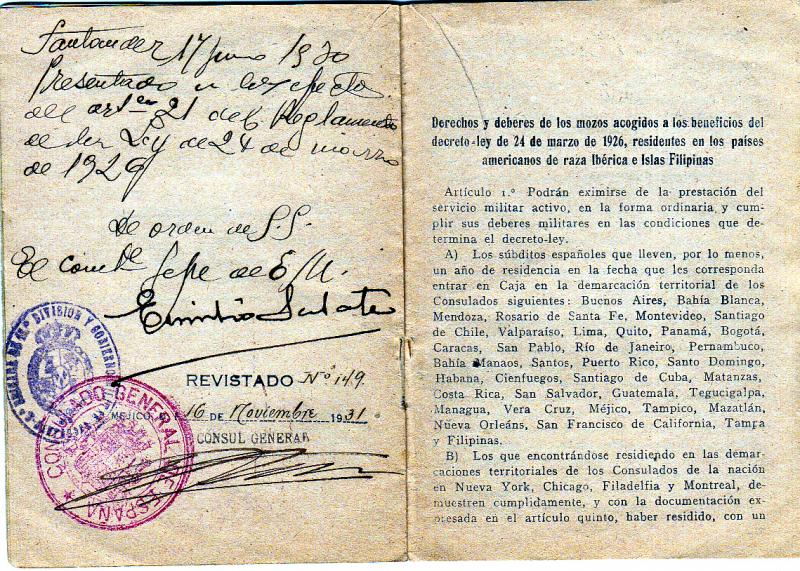 Santander 17 junio 1930
Presentado a los efectos
del artº 21 del Reglamento
de la Ley de 24 de marzo
de 1926
De orden de S.S.
El comte Jefe de E/M.
Emilio
DIVISION Y GOBIERNO
REVISTADO Nº 149
MEJICO, D. F. 16 DE Noviembre 1931
CONSUL GENERAL
CONSULADO GENERAL DE ESPAÑA
Derechos y deberes de los mozos acogidos a los beneficios del
decreto-ley de 24 de marzo de 1926, residentes en los países
americanos de raza Ibérica e Islas Filipinas
Artículo 1.º Podrán eximirse de la prestación del
servicio militar activo, en la forma ordinaria, y cum-
plir sus deberes militares en las condiciones que de-
termina el decreto-ley.
A) Los súbditos españoles que lleven, por lo menos,
un año de residencia en la fecha que les corresponda
entrar en Caja en la demarcación territorial de los
Consulados siguientes: Buenos Aires, Bahía Blanca,
Mendoza, Rosario de Santa Fe, Montevideo, Santiago
de Chile, Valparaíso, Lima, Quito, Panamá, Bogotá,
Caracas, San Pablo, Río de Janeiro, Pernambuco,
Bahía Manaos, Santos, Puerto Rico, Santo Domingo,
Habana, Cienfuegos, Santiago de Cuba, Matanzas,
Costa Rica, San Salvador, Guatemala, Tegucigalpa,
Managua, Vera Cruz, Méjico, Tampico, Mazatlán,
Nueva Orleáns, San Francisco de California, Tampa
y Filipinas.
B) Los que encontrándose residiendo en las demar-
caciones territoriales de los Consulados de la nación
en Nueva York, Chicago, Filadelfia y Montreal, de-
muestren cumplidamente, y con la documentación ex-
presada en el artículo quinto, haber residido, con un